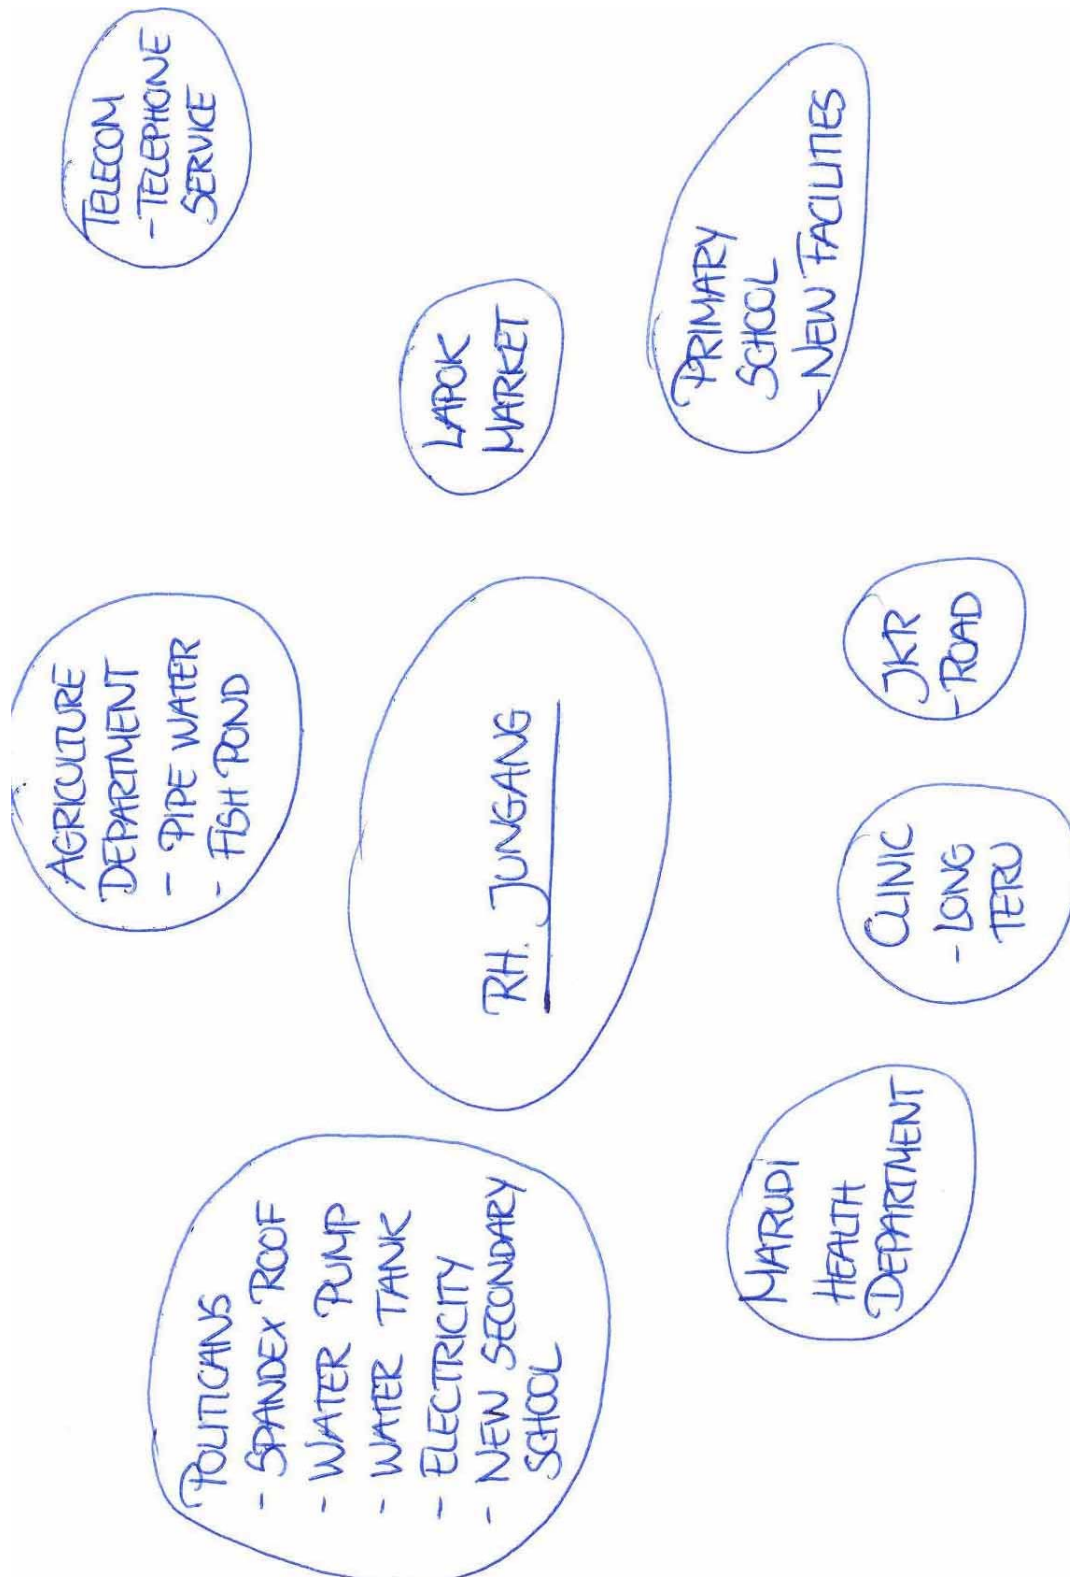 POLITICANS
- SPANDEX ROOF
- WATER PUMP
- WATER TANK
- ELECTRICITY
- NEW SECONDARY
SCHOOL
AGRICULTURE
DEPARTMENT
- PIPE WATER
- FISH POND
TELECOM
- TELEPHONE
SERVICE
RH. JUNGANG
LAPOK
MARKET
MARUDI
HEALTH
DEPARTMENT
CLINIC
- LONG
TERU
JKR
- ROAD
PRIMARY
SCHOOL
- NEW FACILITIES